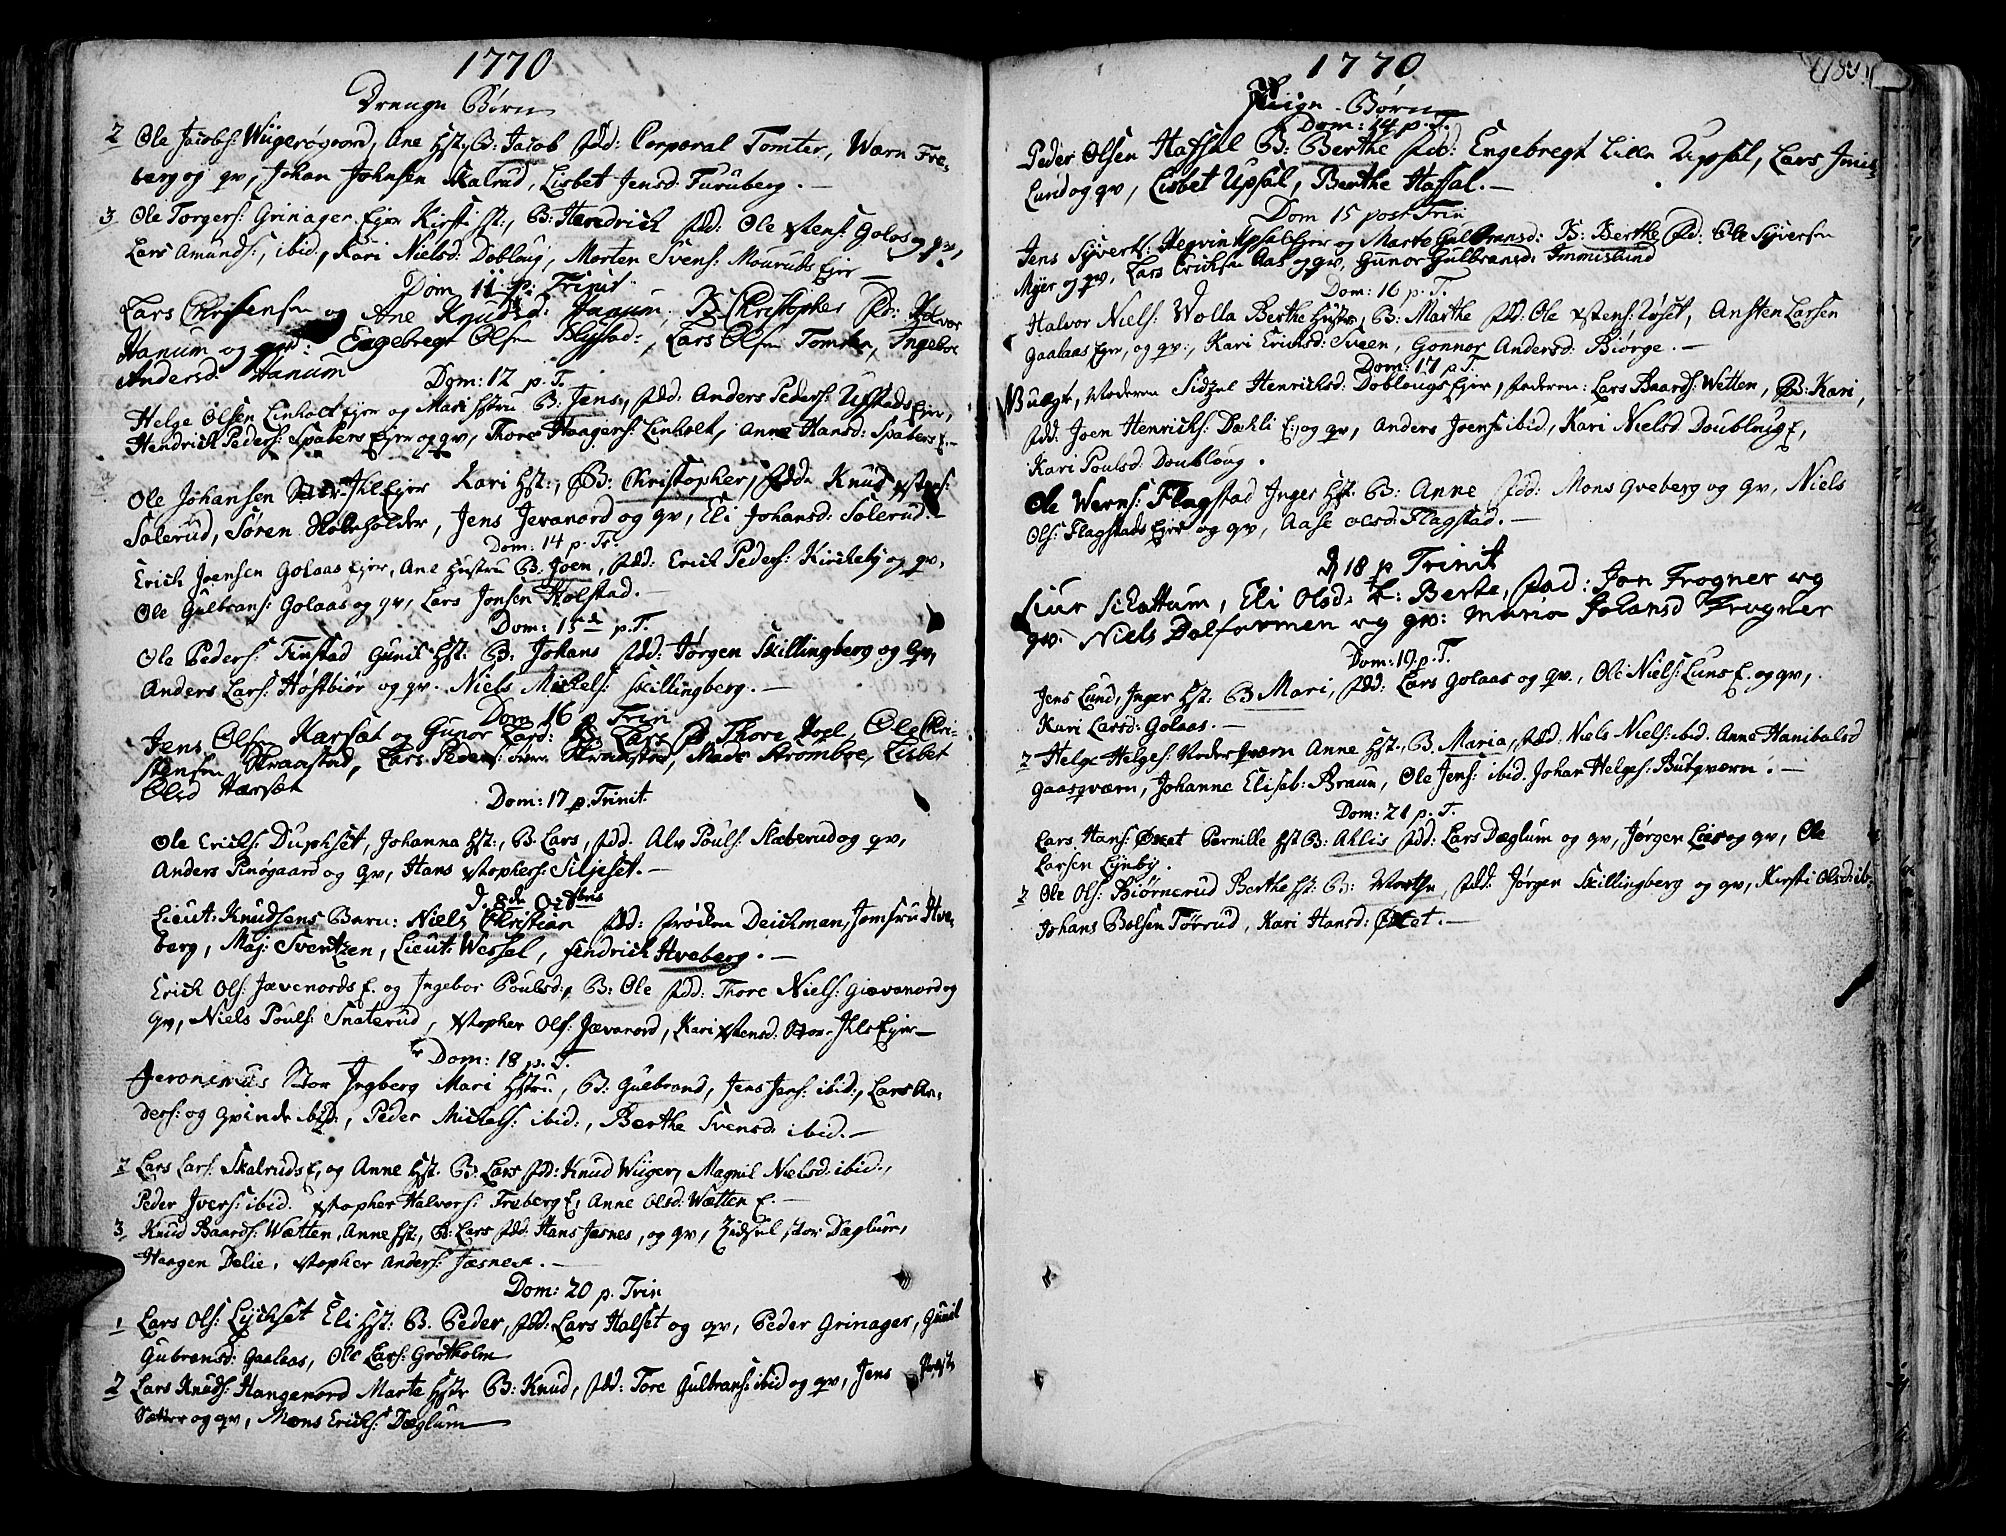 1770
Drenge Børn
2 Ole Jacobs: Wiigerøgaard, Ane Hst: B: Jacob fdd: Corporal Tomter, Warn Fre-
berg og qv, Johan Johnsen Skalrud, Lisbet Jensd: Furuberg. —
3 Ole Torgers: Grinager Ejer Kirsti Hst:, B: Hendrich fdd: Ole Xstens: Golos og qv,
Lars Amunds:, ibid, Kari Nielsd: Dobloug, Morten Svens: Mouruds Ejer —
Dom 11 p: Trinit
Lars Christensen og Ane Knudsd: Hanum, B: Christopher fdr: Halvor
Hanum og qv: Engebregt Olsen Blystad:, Lars Olsen Tomter, Ingebor
Andersd: Hanum
Dom: 12 p. T.
Helge Olsen Linholt Ejer og Mari Hstru B: Jens, fdd: Anders Peders: Ufstads Ejer,
Hendrich Peders: Spabers Ejer og qv, Thore Haagens: Linholt, Anne Hansd: Spabers E.—
Ole Johansen Stor-Ihl Ejer Kari Hst:, B: Christopher, fdd: Knud Xstens:
Solerud, Søren Holeholder, Jens Jevanord og qv, Eli Johansd: Solerud. —
Dom: 14 p. Tr:
Erich Joensen Golaas Ejer, Ane Hustru B: Joen, fdd: Erich Peders: Kirckeby og qv,
Ole Gulbrans: Golaas og qv, Lars Jonsen Holstad. —
Dom: 15de p. T.
Ole Peders: Finstad Gunil Hst: B: Johans fdd: Jørgen Skillingberg og Qv,
Anders Lars: Høstbiør og qv. Niels Mickels: Skillingberg. —
Dom 16 p Trin
Jens Olsen Karsæt og Gunor Larsd: B: Lars fd Thore Hoel, Ole Chri-
stensen Straastad, Lars Peders: øvre Straastad, Mads Strømboe, Lisbet
Olsd Harsæt
Dom: 17 p. Trinit.
Ole Erichs: Duphset, Johanna Hst:, B: Lars, fdd: Alv Pouls: Slæberud og qv,
Anders Pinøgaard og qv, Hans Xstophers: Siljeset. —
d. 8de Octbris
Lieut: Knudsens Barn: Niels Christian fdd: Frøken Deichman, Jomfru Hve-
berg, Maj: Sventzen, Lieut: Wessel, Fendrich Hveberg. —
Erich Ols: Jævenords E. og Ingebor Poulsd:, B: Ole fdd: Thore Niels: Giævanord og
qv, Niels Pouls: Snaterud, Xstopher Ols: Jævanord, Kari Xstensd: Stor-Ihls Ejer —
Dom: 18 p. T.
Jeronimus Stor Ingberg Mari Hstru, B: Gulbrand, Jens Jens: ibid:, Lars An-
ders: og qvinde ibid:, Peder Mickels: ibid:, Berthe Svensd: ibid. —
2 Lars Lars: Skalruds E, og Anne Hst. B. Lars fdd: Knud Wiiger, Magnil Nielsd: ibid:,
Peder Ivers: ibid. Xstopher Halvors: Freberg E, Anne Olsd: Wætten E. —
3 Knud Baards: Wætten, Anne Hst:, B: Lars fdd: Hans Jæsnes, og qv, Zidsel stor Dæglum,
Haagen Delie, Xstopher Anders: Jæsnes. —
Dom: 20 p. Trin
1 Lars Ols: Lyckset Eli Hst: B. Peder, fdd: Lars Halset og qv, Peder Grinager, Gunil
Gubransd: Gaalaas, Ole Lars: Grøtholm
2 Lars Knuds: Hangenord Marte Hstr B: Knud, fdd: Tore Gulbrans: ibid og qv, Jens Præste
Sætter og qv, Mons Erichs: Dæglum —
1770
Piige-Børn
Dom: 14 p. T.
Peder Olsen Hafsal B: Berthe fdd: Engebregt Lille Upsal, Lars Imis-
lund og qv, Lisbet Upsal, Berthe Hafsal. —
Dom 15 post Trin
Jens Syverts: Hegvin Upsal Ejer og Marte Gulbransd: B: Berthe fd: Ole Syversen
Myer og qv, Lars Ericksen Aas og qv, Gunor Gulbransd: Immislund
Dom: 16 p. T.
Halvor Niels: Wolla Berthe Hustr, B: Marthe fdd: Ole Xstens: Løset, Ansten Larsen
Gaalaas Ejer, og qv:, Kari Ericksd: Sveen, Gonnor Andersd: Biørge. —
Dom: 17 p T.
Uægt, Moderen Sidzel Henrichsd: Doblougs Ejer, Faderen: Lars Baards: Wetten, B: Kari,
fdd: Joen Henrichs: Dæhli E:, og qv, Anders Joens: ibid, Kari Nielsd Doubloug E,
Kari Poulsd: Doubloug.
Ole Werns: Flagstad Inger Hst: B: Anne fdd: Mons Qveberg og qv, Niels
Ols: Flagstads Ejer og qv, Aase Olsd: Flagstad. —
D 18 p Trinit
Siur Schattum, Eli Olsd: b: Berte, fad: Jon Frogner og
qv: Niels Dalfarmen og qv: Maria Johansd Frogner
Dom: 19 p. T.
Jens Lund, Inger Hst: B Mari, fdd: Lars Golaas og qv., Ole Niels: Luns E. og qv,
Kari Larsd: Golaas. —
2 Helge Helges: Nederqværn Anne Hst., B. Maria, fdd: Niels Niels: ibid. Anne Hanibalsd
Gaasqværn, Johanne Elisab: Braun, Ole Jens: ibid. Johan Helges: Butqværn. —
Dom: 21 p. T.
Lars Hans: Øxset Pernille Hst B: Ahlis fdd: Lars Dæglum og qv, Jørgen Lier og qv, Ole
Larsen Lynby.
2 Ole Ols: Biørnerud Berthe Hst: B: Marthe, fdd: Jørgen Skillingberg og qv, Kirsti Olsd: ib-
Johans Bolsen Tørrud, Kari Hansd: Øxet. —